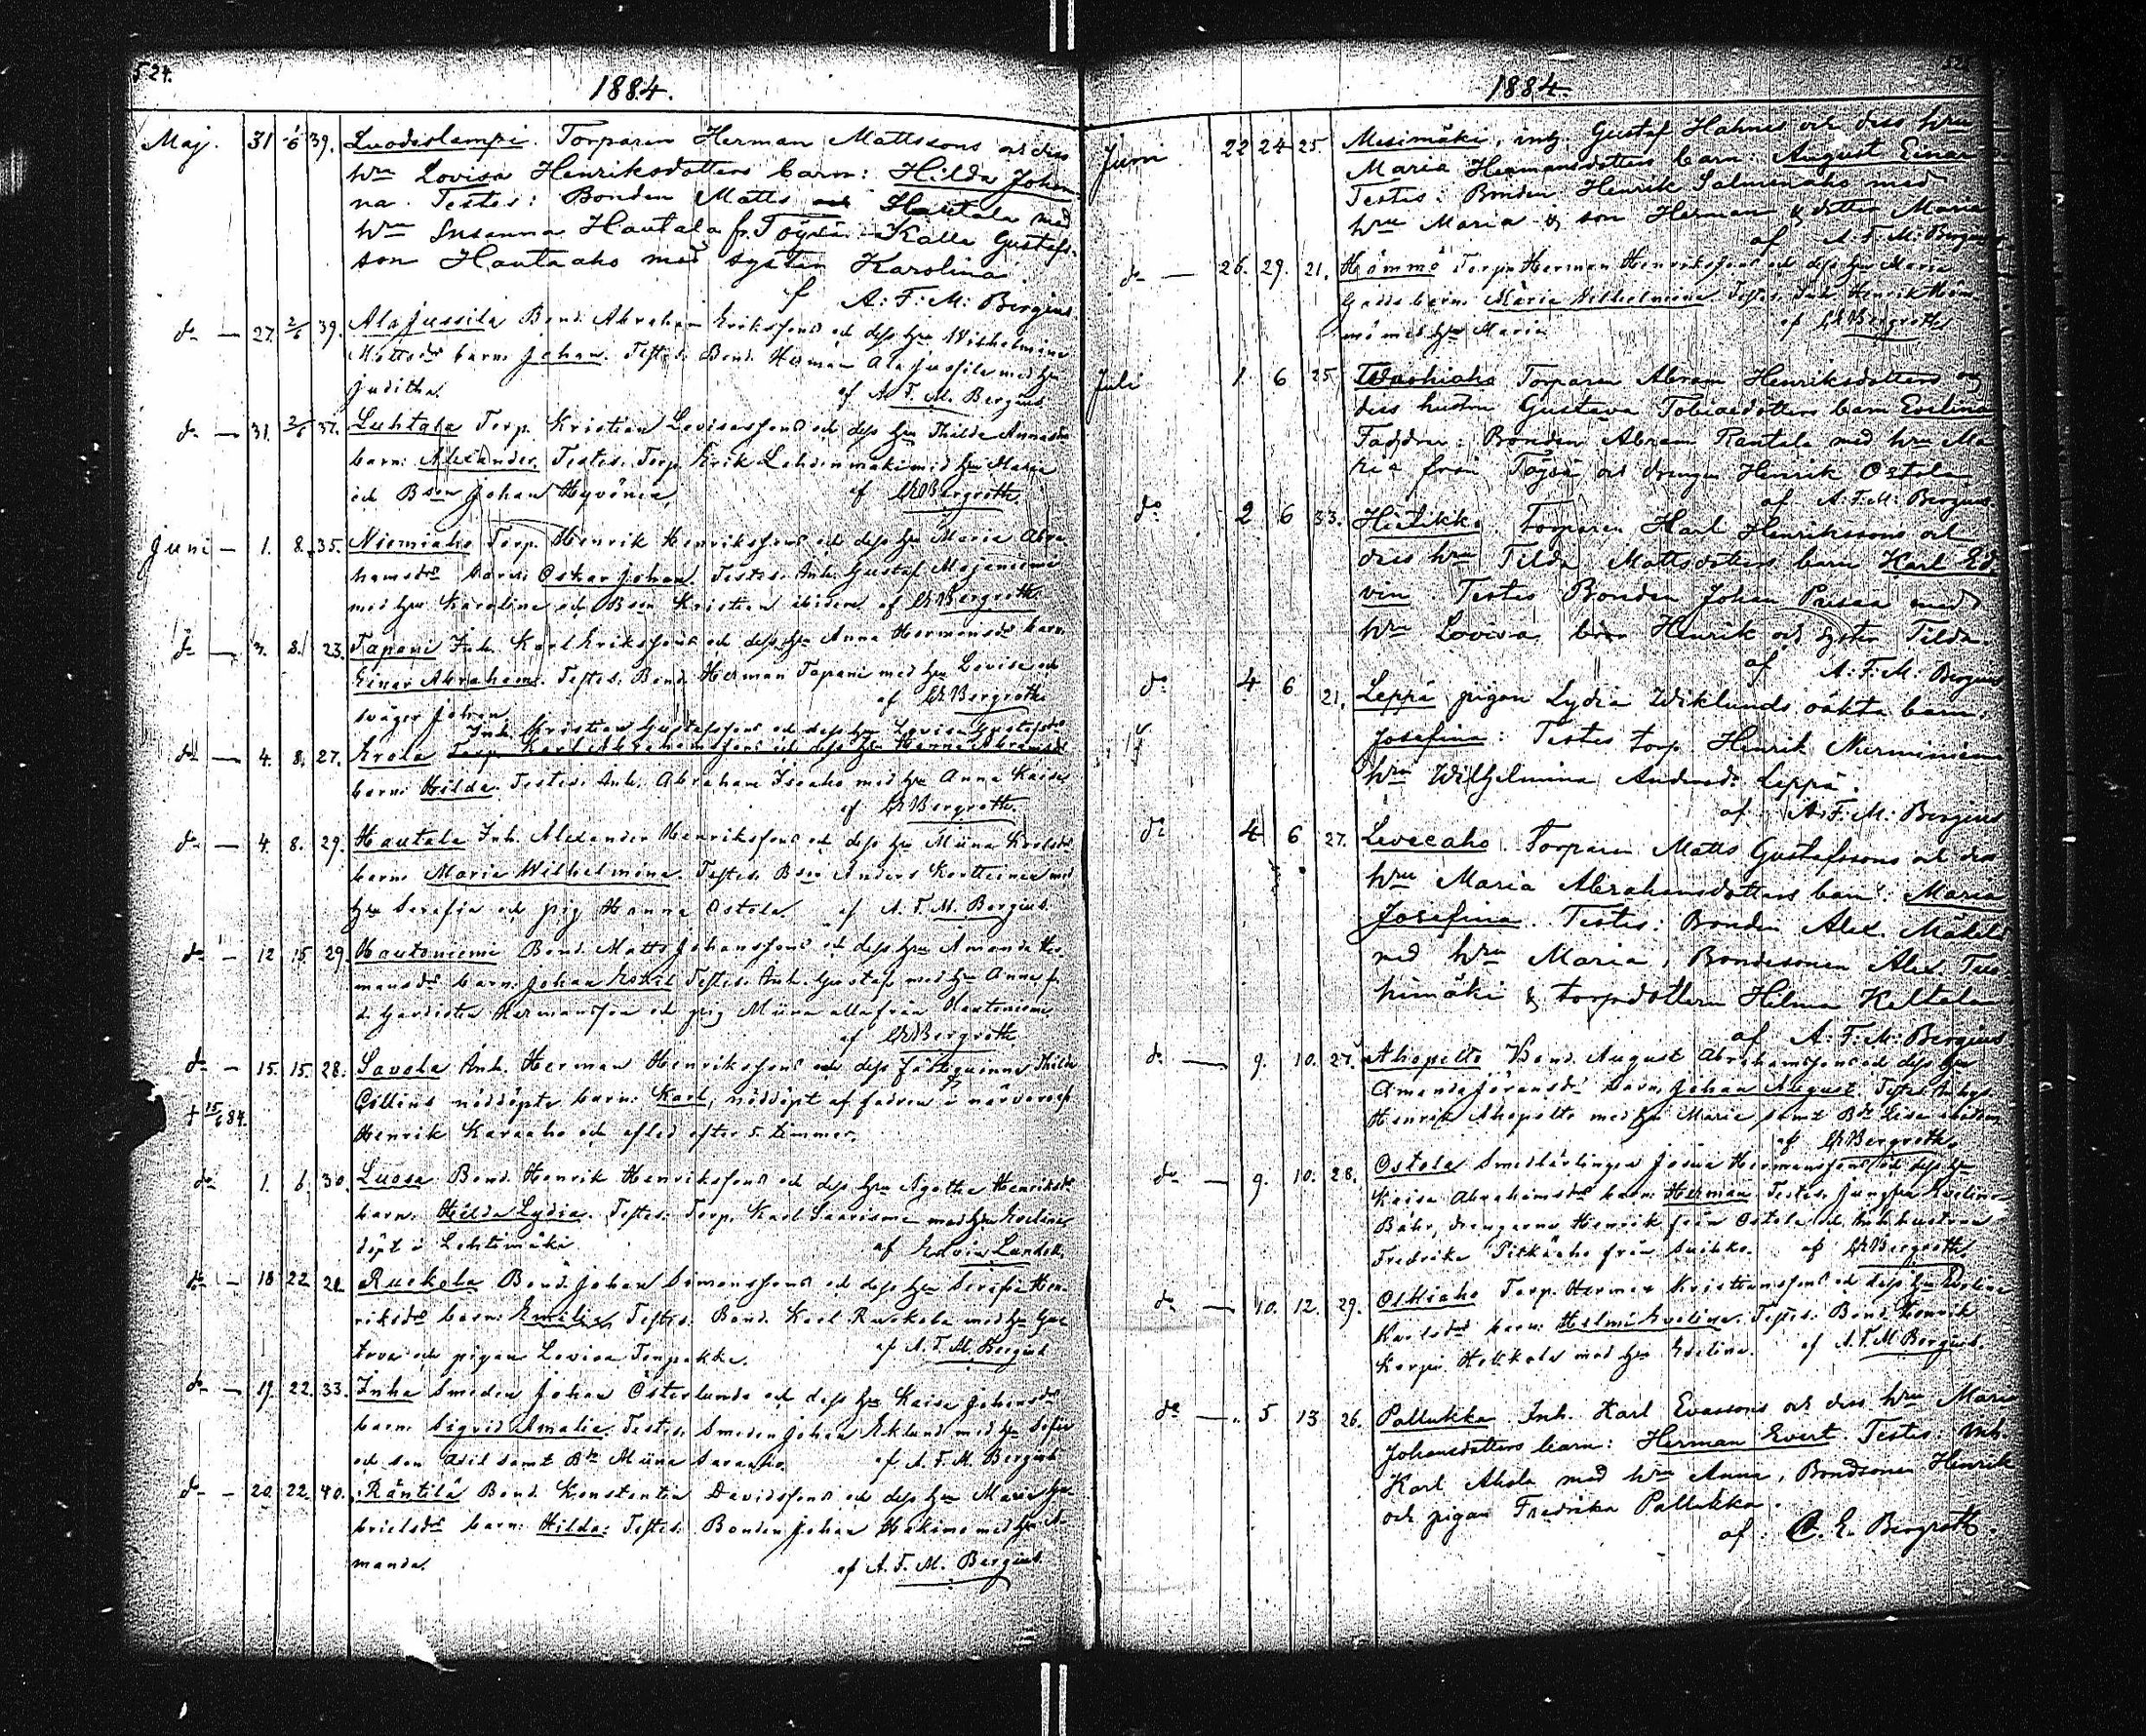 524.
1884.
Maj. 31 1/6 39. Luodeslampi. Torparen Herman Mattssons och dess
hru Lovisa Henriksdotters barn: Hilda Johan-
na. Testes: Bonden Matts Hautala med
hru Susanna Hautala fr. Töysä. Kalle Gustafs-
son Hautaaho med syster Karolina
af A: F: M: Bergius
do — 27. 2/6 39. Alajussila Bond. Abraham Erikssons och dess hru Wilhelmina
Mattsdrs barn: Johan. Testes. Bond. Herman Alajussila med hru
Juditha. af A. F. M. Bergius
do — 31. 2/6 37. Luhtala Torp. Kristian Lovisassons och dess hru Thilda Annasdrs
barn: Alexander. Testes. Torp. Erik Lehdenmäki med hru Maria
och Bson Johan Hyvönen af CEBergroth.
Juni — 1. 8. 35. Niemiaho Torp. Henrik Henrikssons och dess hru Maria Abra-
hamsdrs barn: Oskar Johan. Testes. Inh. Gustaf Majaniemi
med hru Karolina och Bson Kristian ibidem af CEBergroth
do — 3. 8. 23. Tapani Inh. Karl Erikssons och dess hru Anna Hermansdrs barn
Einar Abraham. Testes. Bond. Herman Tapani med hru Lovisa och
svåger Johan af CEBergroth
Inh. Kristian Gustafssons och dess hru Lovisa Gustafsdrs
do — 4. 8. 27. Erola Torp. Karl Abrahamssons och dess hru Hanna Abramsdrs
barn: Hilda. Testes. Inh. Abraham Isoaho med hru Anna Kaisa
af CEBergroth
do — 4. 8. 29. Hautala Inh. Alexander Henrikssons och dess hru Miina Karlsdrs
barn: Maria Wilhelmina. Testes. Bson Anders Kortteinen med
hru Serafia och pig. Hanna Ostola. af A. F. M. Bergius.
do — 12 15 29. Hautoniemi Bond. Matts Johanssons och dess hru Amanda Her-
mansdrs barn: Johan Eskil Testes. Inh. Gustaf med hru Anna
Hermansson och pig Miina alla från Hautoniemi
af CEBergroth
do — 15. 15. 28. Savola Inh. Herman Henrikssons och dess fästeqvinna Thilda
nöddöpta barn: Karl, nöddöpt af fadren i närvaro af
+ 15/6 84. Henrik Karaaho och afled efter 5 timmar.
do 1. 6. 30. Luosa Bond. Henrik Henrikssons och dess hru Agatha Henriksdrs
barn: Hilda Lydia. Testes. Torp. Karl Saarisma med hru Evelina
döpt i Lehtimäki af Edvin Landell
do — 18 22 21. Ruokola Bond. Johan Simonssons och dess hru Serafia Hen-
riksdrs barn: Emilia. Testes. Bond. Karl Ruokola med hru Gus-
tava och pigan Lovisa Tenpakka. af A. F. M. Bergius
do — 19. 22. 33. Inha Smeden Johan Österlunds och dess hru Kaisa Johansdrs
barn: Sigrid Amalia. Testes. Smeden Johan Eklund med hru Sofia
och son Axel samt Bdr Miina Saraaho. af A. F. M. Bergius
do — 20. 22. 40. Räntilä Bond. Konstantin Davidssons och dess hru Maria Ga-
brielsdrs barn: Hilda. Testes. Bonden Johan Hakimo med hru A-
manda. af A. F. M. Bergius.
525
1884
Juni 22 24 25. Mesimäki, inh Gustaf Hahnes och dess hru
Maria Hermansdotters barn: August Einar
Testes: Bonden Henrik Salmenaho med
hru Maria & son Herman & dotter Maria
af A. F. M: Bergius
do — 26. 29. 21. Hömmö Torp. Herman Henrikssons och dess hru Maria
barn: Maria Wilhelmina. Testes. Inh. Henrik Höm-
mö med hru Maria af CEBergroth
Juli 1. 6 25 Torparen Abram Henriksdotters og
dess hustru Gustava Tobiaedotters barn Evelina
Faddrar: Bonden Abram Rantala med hru Ma-
ria från Töysä och drengen Henrik Ostola
af A: F: M: Bergius.
do 2 6 33. Hietikko. Torparen Karl Henrikssons och
dess hru Tilda Mattsdotters barn Karl Ed-
vin. Testes Bonden Johan Pusaa med
hru Lovisa, bror Henrik och syster Tilda.
af A: F: M: Bergius
do 4 6 21. Leppä pigan Lydia Wiklunds oäkta barn:
Josefina: Testes torp Henrik Nurminiemi
hru Wilhelmina Andersdr. Leppä.
af A: F: M: Bergius
do 4 6 27. Leveeaho. Torparen Matts Gustafssons och dess
hru Maria Abrahamsdotters barn: Maria
Josefina. Testes: Bonden Alex. Mäkelä
med hru Maria, Bondesonen Alex Tuo-
himäki & torpdottern Hilma Keltala
af A. F: M: Bergius
do — 9. 10. 27. Ahopelto Bond. August Abrahamssons och dess hru
Amanda Göransdrs barn: Johan August. Testes. Inhys.
Henrik Ahopelto med hru Maria samt Bdr Lisa ibidem
af CEBergroth.
do — 9. 10. 28. Ostola Smedlärlingen Josua Hermanssons och dess hru
Kaisa Abrahamsdrs barn: Herman. Testes. Jungfru Evelina
Bähr, drengarne Henrik från Ostola och Inh.hustrun
Fredrika Pitkäaho från Suikko. af CEBergroth
do — 10. 12. 29. Ostliaho Torp. Herman Kristianssons och dess hru Evelina
Karlsdrs barn: Helmi Evelina. Testes: Bond. Henrik
Korpi Holkkola med hru Evelina. af A. F. M. Bergius.
do — . 5 13 26. Pallukka. Inh. Karl Evassons och dess hru Maria
Johansdotters barn: Herman Evert. Testes: Inh.
Karl Ahola med hru Anna, Bondsonen Henrik
och pigan Fredrika Pallukka.
af: C. E. Bergroth.